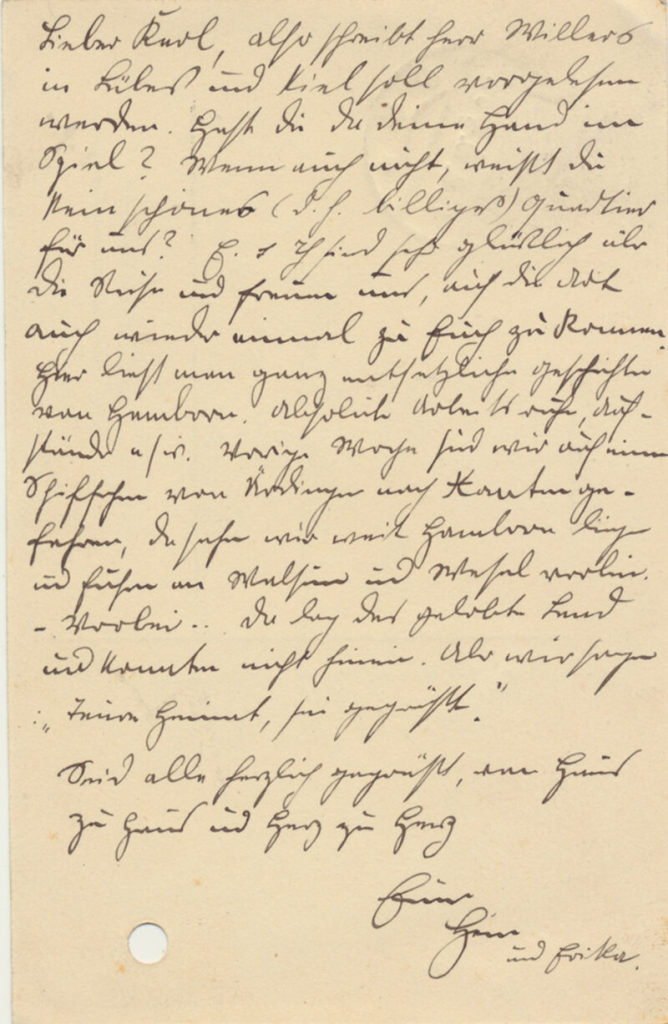 Lieber Karl, also schreibt Herr Willers
in Lübeck und Kiel soll vorgelesen
werden. Hast du da deine Hand im
Spiel? Wenn auch nicht, weißt du
kein schönes (d. h. billiges) Quartier
für uns? E. + Ich sind sehr glücklich über
die Reise und freuen uns, auf die Art
auch wieder einmal zu Euch zu kommen.
Hier liest man ganz entsetzliche Geschichten
von Hamborn. Absolute Arbeitsruhe, Auf-
stände usw. Vorige Woche sind wir auf einem
Schiffchen von Ürdingen nach Xanten ge-
fahren, da sahen wir weit Hamborn liegen
und fuhren an Walsum und Wesel vorbei.
- Vorbei .. Da lag das gelobte Land
und konnten nicht hinein. Aber wir sangen
: „Teure Heimat, sei gegrüßt."
Seid alle herzlich gegrüßt, von Haus
zu Haus und Herz zu Herz
Euer
Hein
und Erika.